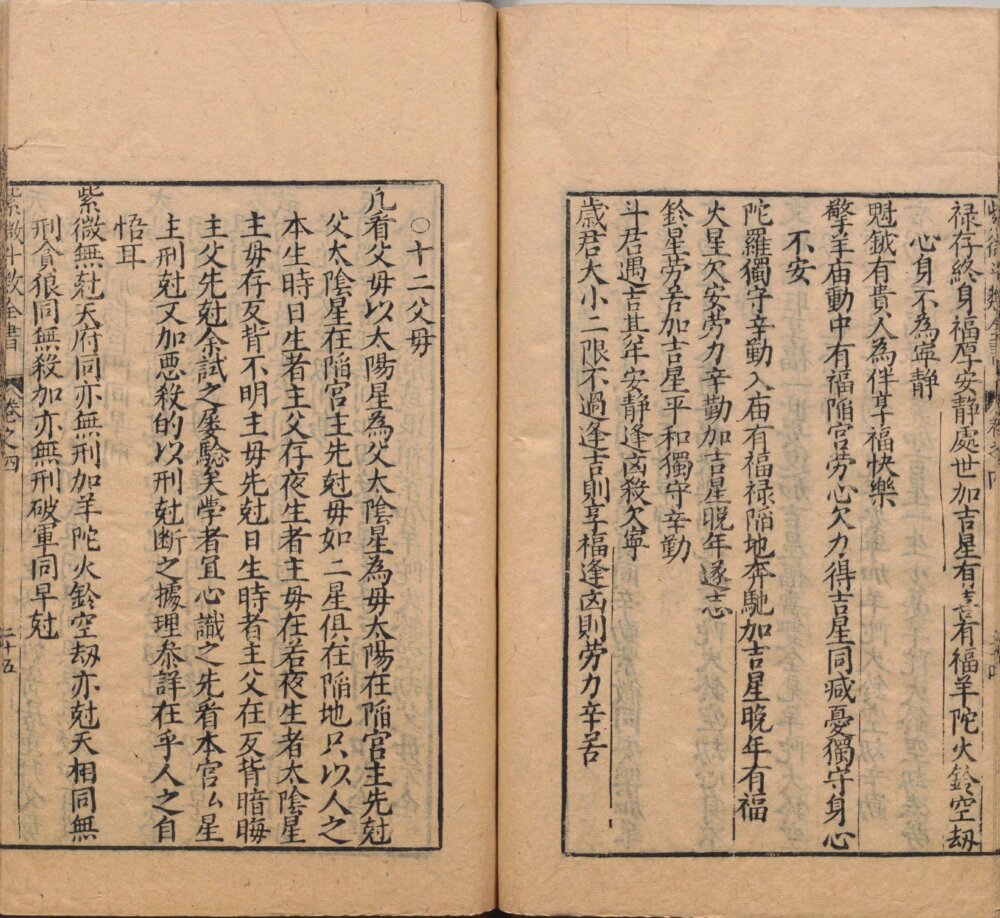 祿存終身福厚安静處世加吉星有喜有福羊陀火鈴空刼
心身不為寧静
魁鉞有貴人為伴享福快樂
擎羊庙動中有福陥宮劳心欠力得吉星同减憂獨守身心
不安
陀羅獨守辛勤入庙有福禄陥地奔馳加吉星晚年有福
火星欠安劳力辛勤加吉星晚年遂志
鈴星劳苦加吉星平和獨守辛勤
斗君遇吉其年安静逢凶殺欠寧
歲君大小二限不過逢吉則享福逢凶則劳力辛苦
○十二父毋
凡看父毋以太陽星為父太陰星為毋太陽在陥宮主先尅
父太陰星在陥宮主先尅毋如二星俱在陥地只以人之
本生時日生者主父存夜生者主毋在若夜生者太陰星
主毋存反背不明主毋先尅日生時者主父在反背暗晦
主父先尅余試之屡驗矣學者冝心識之先看本宮厶星
主刑尅又加悪殺的以刑尅断之據理叅詳在乎人之自
悟耳
紫微無尅天府同亦無刑加羊陀火鈴空刼亦尅天相同無
刑貪狼同無殺加亦無刑破軍同早尅
紫微斗数全書 卷之四 二十五